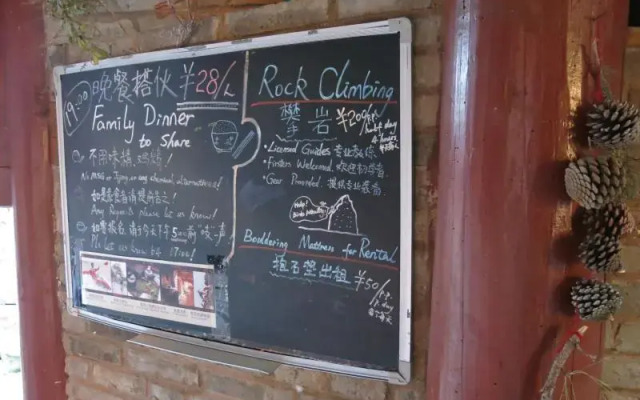 19:00
晚餐搭伙 ¥28/人
Family Dinner
to Share
不用味精、鸡精!
No MSG or Jijing or any chemical alternatives!
如是素食者请提前告之!
Any Req. please let us know!
如需报名 请于今天下午5:00前"吱"一声
Pls let us know b4 17:00!
Rock Climbing
攀岩 ¥200/
half day
4 hours
• Licensed Guides 专业教练
• First time Welcomed. 欢迎初学者
• Gear Provided. 提供专业装备
Help!
Bouldering Mattress for Rental
抱石垫出租 ¥50/